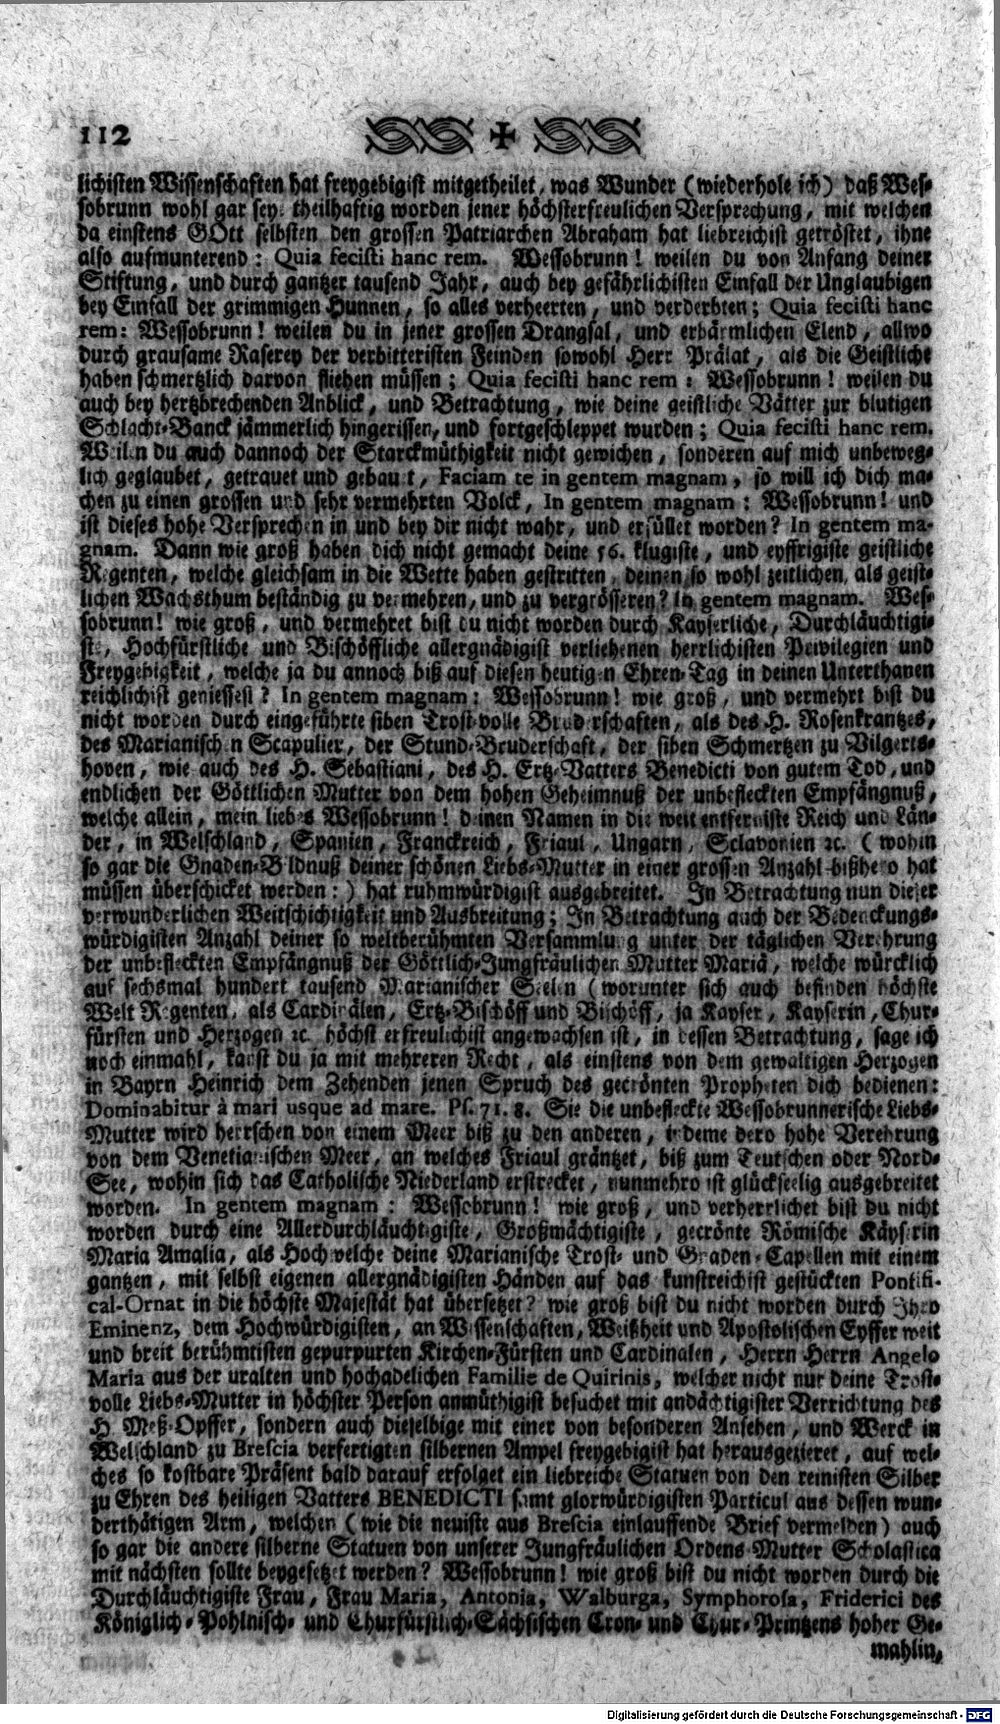 112
lichisten Wissenschaften hat freygebigist mitgetheilet, was Wunder (wiederhole ich) daß Wes-
sobrunn wohl gar seye theilhaftig worden jener höchsterfreulichen Versprechung, mit welchen
da einstens GOtt selbsten den grossen Patriarchen Abraham hat liebreichist getröstet, ihne
also aufmunterend: Quia fecisti hanc rem. Wessobrunn! weilen du von Anfang deiner
Stiftung, und durch gantzer tausend Jahr, auch bey gefährlichisten Einfall der Unglaubigen
bey Einfall der grimmigen Hunnen, so alles verheerten, und verderbten; Quia fecisti hanc
rem: Wessobrunn! weilen du in jener grossen Drangsal, und erbärmlichen Elend, allwo
durch grausame Raserey der verbitteristen Feinden sowohl Herr Prälat, als die Geistliche
haben schmertzlich darvon fliehen müssen; Quia fecisti hanc rem: Wessobrunn! weilen du
auch bey hertzbrechenden Anblick, und Betrachtung, wie deine geistliche Vätter zur blutigen
Schlacht-Banck jämmerlich hingerissen, und fortgeschleppet wurden; Quia fecisti hanc rem.
Weilen du auch dannoch der Starckmüthigkeit nicht gewichen, sonderen auf mich unbeweg-
lich geglaubet, getrauet und gebauet, Faciam te in gentem magnam, so will ich dich ma-
chen zu einen grossen und sehr vermehrten Volck, In gentem magnam: Wessobrunn! und
ist dieses hohe Versprechen in und bey dir nicht wahr, und erfüllet worden? In gentem ma-
gnam. Dann wie groß haben dich nicht gemacht deine 56. klugiste, und eyffrigiste geistliche
Regenten, welche gleichsam in die Wette haben gestritten, deinen so wohl zeitlichen, als geist-
lichen Wachsthum beständig zu vermehren, und zu vergrösseren? In gentem magnam. Wes-
sobrunn! wie groß, und vermehret bist du nicht worden durch Kayserliche, Durchläuchtigi-
ste, Hochfürstliche und Bischöffliche allergnädigist verliehenen herrlichisten Privilegien und
Freygebigkeit, welche ja du annoch biß auf diesen heutigen Ehren-Tag in deinen Unterthanen
reichlichist geniessest? In gentem magnam: Wessobrunn! wie groß, und vermehrt bist du
nicht worden durch eingeführte siben Trost-volle Bruderschaften, als des H. Rosenkrantzes,
des Marianischen Scapulier, der Stund-Bruderschaft, der siben Schmertzen zu Vilgerts-
hoven, wie auch des H. Sebastiani, des H. Ertz-Vatters Benedicti von gutem Tod, und
endlichen der Göttlichen Mutter von dem hohen Geheimnuß der unbefleckten Empfängnuß,
welche allein, mein liebes Wessobrunn! deinen Namen in die weit entferniste Reich und Län-
der, in Welschland, Spanien, Franckreich, Friaul, Ungarn, Sclavonien ꝛc. (wohin
so gar die Gnaden-Bildnuß deiner schönen Liebs-Mutter in einer grossen Anzahl bißhero hat
müssen überschicket werden:) hat ruhmwürdigist ausgebreitet. In Betrachtung nun dieser
verwunderlichen Weitschichtigkeit und Ausbreitung; In Betrachtung auch der Bedenckungs-
würdigisten Anzahl deiner so weltberühmten Versammlung unter der täglichen Verehrung
der unbefleckten Empfängnuß der Göttlich-Jungfräulichen Mutter Mariä, welche würcklich
auf sechsmal hundert tausend Marianischer Seelen (worunter sich auch befinden höchste
Welt Regenten, als Cardinälen, Ertz-Bischöff und Bischöff, ja Kayser, Kayserin, Chur-
fürsten und Herzogen ꝛc. höchst erfreulichist angewachsen ist, in dessen Betrachtung, sage ich
noch einmahl, kanst du ja mit mehreren Recht, als einstens von dem gewaltigen Herzogen
in Bayrn Heinrich dem Zehenden jenen Spruch des gecrönten Propheten dich bedienen:
Dominabitur à mari usque ad mare. Ps. 71. 8. Sie die unbefleckte Wessobrunnerische Liebs-
Mutter wird herrschen von einem Meer biß zu den anderen, indeme dero hohe Verehrung
von dem Venetianischen Meer, an welches Friaul gräntzet, biß zum Teutschen oder Nord-
See, wohin sich das Catholische Niederland erstrecket, nunmehro ist glückseelig ausgebreitet
worden. In gentem magnam: Wessobrunn! wie groß, und verherrlichet bist du nicht
worden durch eine Allerdurchläuchtigiste, Großmächtigiste, gecrönte Römische Käyserin
Maria Amalia, als Hochwelche deine Marianische Trost- und Gnaden-Capellen mit einem
gantzen, mit selbst eigenen allergnädigisten Händen auf das kunstreichist gestückten Pontifi-
cal-Ornat in die höchste Majestät hat übersetzet? wie groß bist du nicht worden durch Ihro
Eminenz, dem Hochwürdigisten, an Wissenschaften, Weißheit und Apostolischen Eyffer weit
und breit berühmtisten gepurpurten Kirchen-Fürsten und Cardinalen, Herrn Herrn Angelo
Maria aus der uralten und hochadelichen Familie de Quirinis, welcher nicht nur deine Trost-
volle Liebs-Mutter in höchster Person anmüthigist besuchet mit andächtigister Verrichtung des
H. Meß-Opffer, sondern auch dieselbige mit einer von besonderen Ansehen, und Werck in
Welschland zu Brescia verfertigten silbernen Ampel freygebigist hat herausgezieret, auf wel-
ches so kostbare Präsent bald darauf erfolget ein liebreiche Statuen von den reinisten Silber
zu Ehren des heiligen Vatters BENEDICTI samt glorwürdigisten Particul aus dessen wun-
derthätigen Arm, welchen (wie die neuiste aus Brescia einlauffende Brief vermelden) auch
so gar die andere silberne Statuen von unserer Jungfräulichen Ordens-Mutter Scholastica
mit nächsten sollte beygesetzet werden? Wessobrunn! wie groß bist du nicht worden durch die
Durchläuchtigiste Frau, Frau Maria, Antonia, Walburga, Symphorosa, Friderici des
Königlich-Pohlnisch- und Churfürstlich-Sächsischen Cron- und Chur-Printzens hoher Ge-
mahlin,
Digitalisierung gefördert durch die Deutsche Forschungsgemeinschaft - DFG